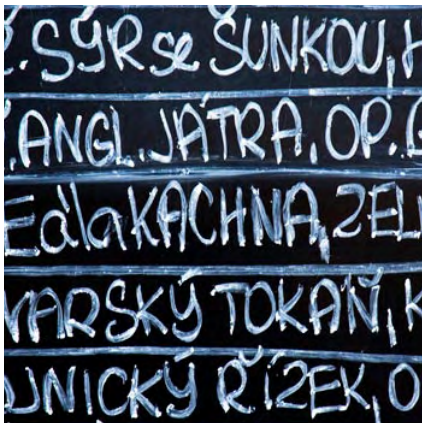 . SÝR se ŠUNKOU, H
. ANGL. JÁTRA, OP.
Eđla KACHNA, ZEL
VARSKÝ TOKÁŇ, K
JNICKÝ ŘÍZEK, O